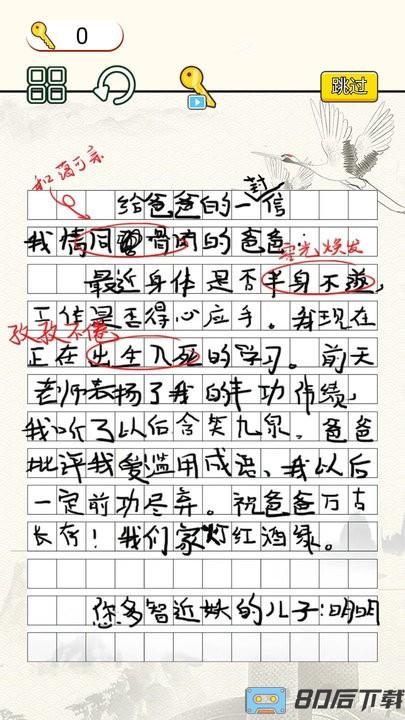 0
跳过
和蔼可亲
给爸爸的一封信
我情同骨肉的爸爸
容光焕发
最近身体是否半身不遂,
工作是否得心应手。我现在
孜孜不倦
正在出生入死的学习。前天
老师表扬了我的丰功伟绩,
我听了以后含笑九泉。爸爸
批评我爱滥用成语、我以后
一定前功尽弃。祝爸爸万古
长存!我们家灯红酒绿。
您多智近妖的儿子:明明
80后下载